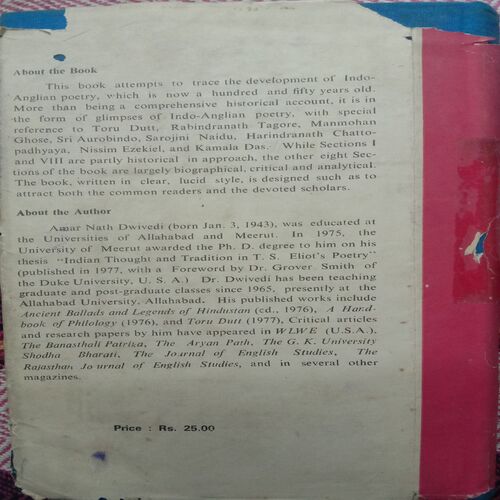 About the Book
This book attempts to trace the development of Indo-
Anglian poetry, which is now a hundred and fifty years old.
More than being a comprehensive historical account, it is in
the form of glimpses of Indo-Anglian poetry, with special
reference to Toru Dutt, Rabindranath Tagore, Manmohan
Ghose, Sri Aurobindo, Sarojini Naidu, Harindranath Chatto-
padhyaya, Nissim Ezekiel, and Kamala Das. While Sections I
and VIII are partly historical in approach, the other eight Sec-
tions of the book are largely biographical, critical and analytical.
The book, written in clear, lucid style, is designed such as to
attract both the common readers and the devoted scholars.
About the Author
Amar Nath Dwivedi (born Jan. 3, 1943), was educated at
the Universities of Allahabad and Meerut. In 1975, the
University of Meerut awarded the Ph. D. degree to him on his
thesis "Indian Thought and Tradition in T. S. Eliot's Poetry"
(published in 1977, with a Foreword by Dr. Grover Smith of
the Duke University, U. S. A.) Dr. Dwivedi has been teaching
graduate and post-graduate classes since 1965, presently at the
Allahabad University, Allahabad. His published works include
Ancient Ballads and Legends of Hindustan (ed., 1976), A Hand-
book of Philology (1976), and Toru Dutt (1977), Critical articles
and research papers by him have appeared in WLWE (U.S.A.),
The Banasthali Patrika, The Aryan Path, The G. K. University
Shodha Bharati, The Journal of English Studies, The
Rajasthan Journal of English Studies, and in several other
magazines.
Price : Rs. 25.00